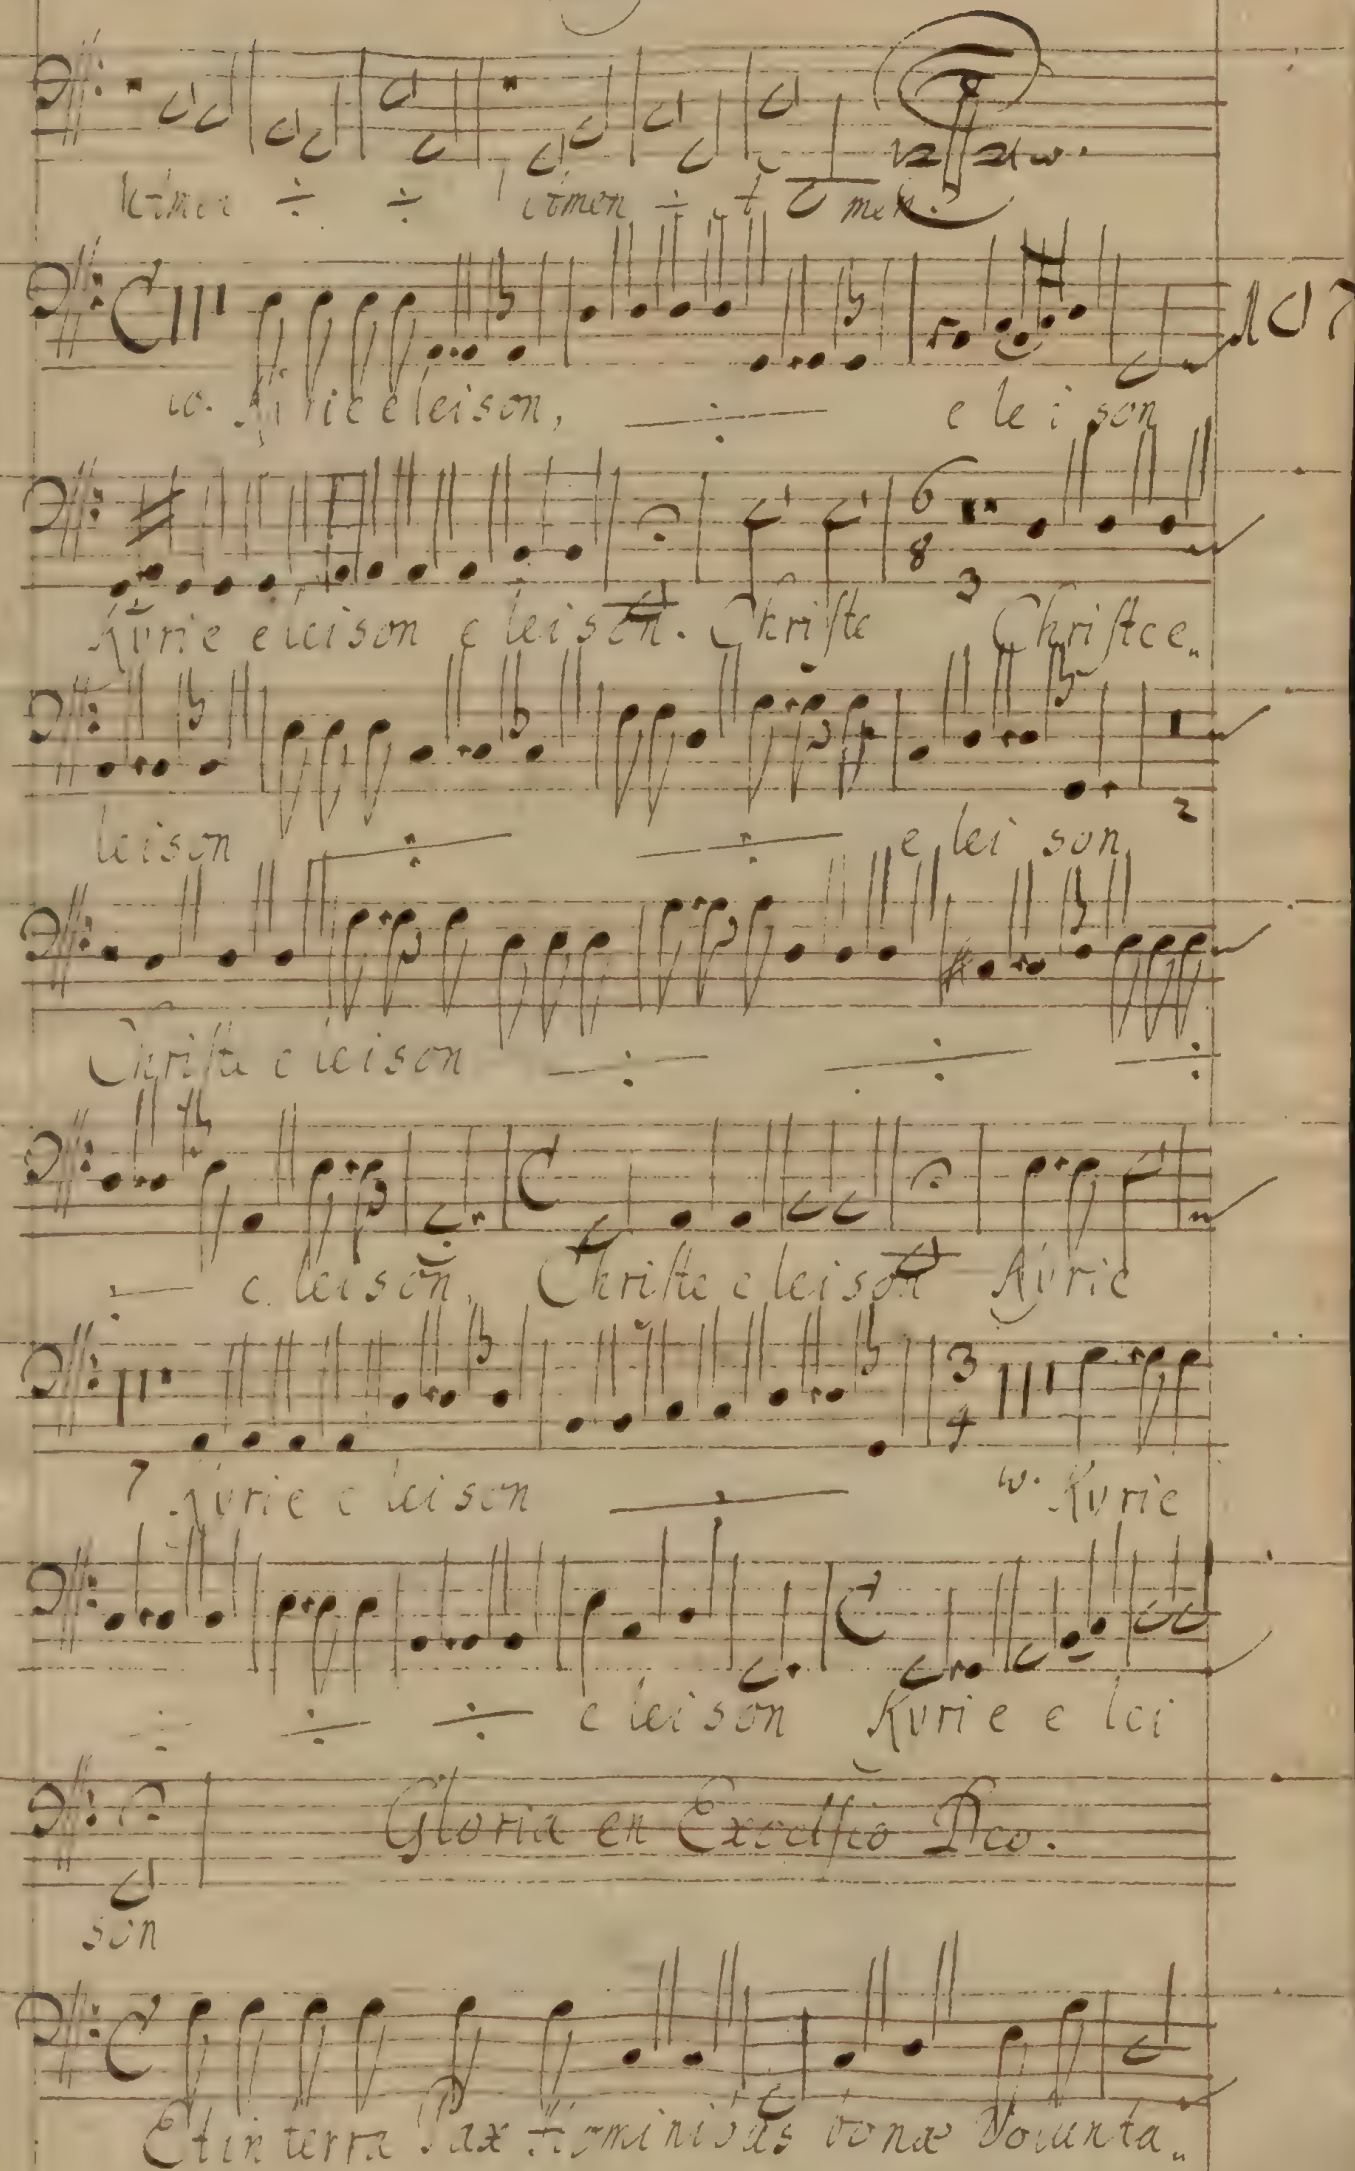 Amen ÷ ÷ Amen ÷ A men.
10. Kyrie eleison, ÷ e lei son
Kyrie eleison e leison. Christe Christe e„
6 8 3
leison ÷ ÷ e lei son
2
Christe e leison ÷ ÷ ÷
÷ e leison, Christe e leison Kyrie
3 4
7 Kyrie e leison ÷ Kyrie
÷ ÷ ÷ e leison Kyrie e lei
Gloria en Excelsio Deo.
son
Et in terra Pax hominibus bonæ Volunta„